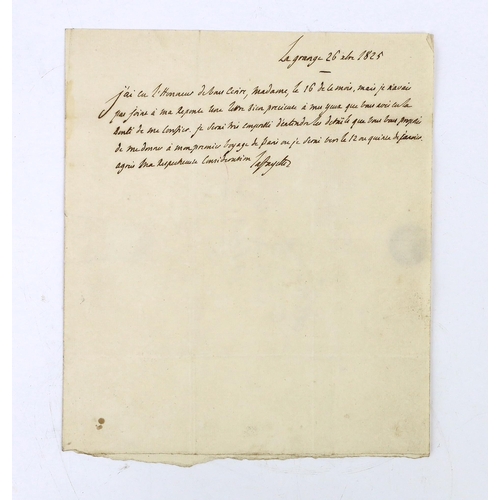 La grange 26 xbre 1825
j'ai eu l'honneur de vous ecrire, madame, le 16 de ce mois, mais je n'avais
pas joint à ma reponse une lettre bien precieuse à mes yeux que vous avés eu la
bonté de me confier. je serai très empressé d'entendre les details que vous vous proposés
de me donner à mon premier voyage de Paris ou je serai vers le 12 ou quinze de janvier.
agrées ma respectueuse consideration Lafayette